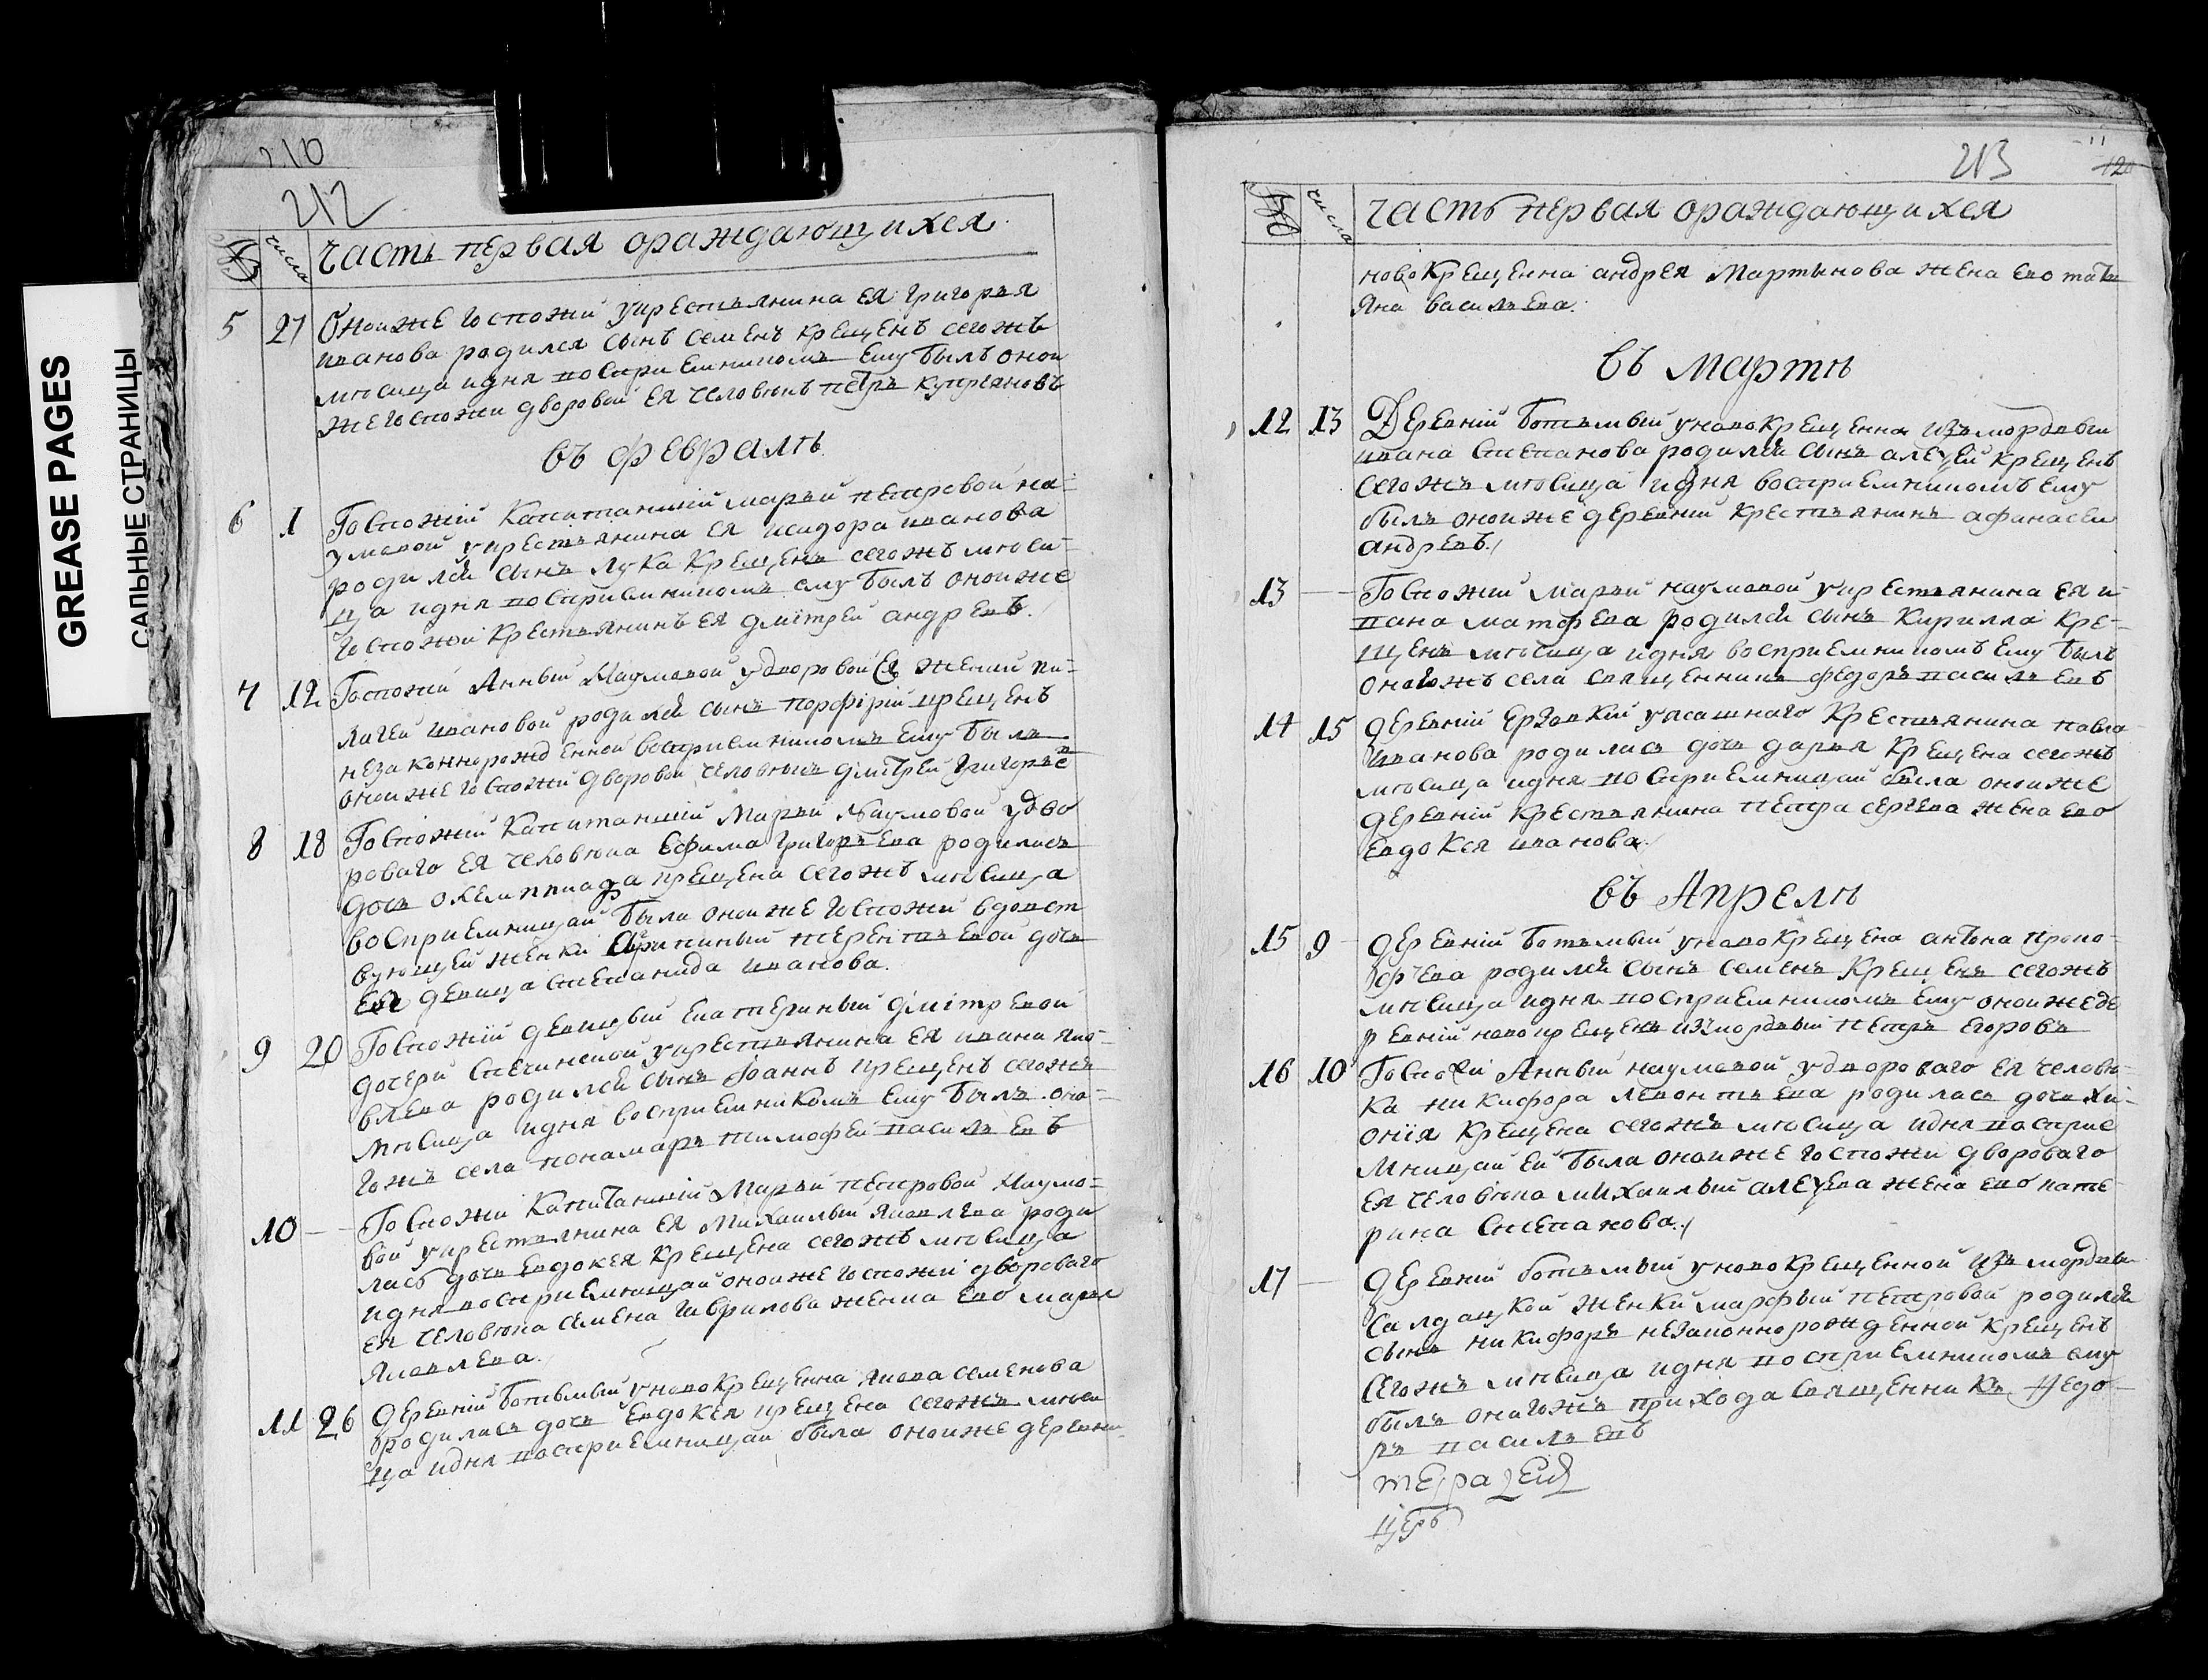 GREASE PAGES
САЛЬНЫЕ СТРАНИЦЫ
210
212
№ числа Часть первая ораждающихся
5 27 Оной же госпожи укрестьянина ея григорья
иванова родился сынъ семенъ крещенъ сегожъ
мѣсяца идня восприемникомъ ему былъ оной
же госпожи дворовой ея человѣкъ петръ купрѣяновъ
въ февралѣ
6 1 Госпожи Капитанши марьи петровой на-
умовой укрестьянина ея исидора иванова
родился сынъ лука крещенъ сегожъ мѣся-
ца идня восприемникомъ ему былъ оной же
госпожи крестьянинъ ея дмитрей андреевъ.
7 12 Госпожи Анны Наумовой удворовой ея женки пи-
лагеи ивановой родился сынъ порфирий крещенъ
незаконнорожденной восприемникомъ ему былъ
оной же госпожи дворовой человѣкъ дмитрей григорьев
8 18 Госпожи Капитанши Марьи Наумовой удво
роваго ея человѣка ефима григорьева родилась
дочь олемпиада крещена сегожъ мѣсяца
восприемницай была оной же госпожи вдовст
вующей женки терентьевой дочь
ея девица степанида иванова.
9 20 Госпожи девицы екатерины дмитревой
дочери укрестьянина ея ивана яко-
влева родился сынъ Iоаннъ крещенъ сегожъ
мѣсяца идня восприемникомъ ему былъ она-
гожъ села понамарь тимофей василевъ
10 — Госпожи Капитанши Марьи петровой Наумо-
вой укрестьянина ея Михаилы яковлева роди
лась дочь евдокея крещена сегожъ мѣсяца
идня восприемницай оной же госпожи двороваго
ея человѣка семена гаврилова женка ево марья
яковлева.
11 26 деревни ботьмы уновокрещенна якова семенова
родилась дочь евдокея крещена сегожъ мѣся
ца идня восприемницай была оной же деревни
213 11 120
№ числа Часть первая ораждающихся
новокрещенна андрея Мартынова жена ево тать
яна васильева.
въ мартѣ
12 13 Деревни ботьмы уновокрещенна изъмордвы
ивана степанова родился сынъ алеѯей крещенъ
сегожъ мѣсяца идня восприемникомъ ему
былъ оной же деревни крестьянинъ афанасей
андревъ.
13 — Госпожи марьи наумовой укрестьянина ея и-
вана матфева родился сынъ Кирилла кре-
щенъ мѣсяца идня восприемникомъ ему былъ
оногожъ села священникъ федоръ василевъ
14 15 деревни ерзовки уясашнаго крестьянина павла
иванова родилась дочь дарья крещена сегожъ
мѣсяца идня восприемницай была оной же
деревни крестьянина петра сергева жена ево
евдокея иванова.
въ Апрелѣ
15 9 деревни ботьмы уновокрещена антона проко-
фчева родился сынъ семенъ крещенъ сегожъ
мѣсяца идня восприемникомъ ему оной же де
ревни новокрещенъ измордвы петръ егоровъ
16 10 Госпожи Анны наумовой удвороваго ея человѣ-
ка никифора левонтьева родилась дочь хи-
онiя крещена сегожъ мѣсяца идня восприе
мницай ей была оной же госпожи двороваго
ея человѣка михаилы алеѯева жена ево кате-
рина степанова.
17 — деревни ботьмы уновокрещенной изъ мордвы
салдацкой женки марфы петровой родился
сынъ никифоръ незаконнорожденной крещенъ
сегожъ мѣсяца идня восприемникомъ ему
былъ онагожъ прихода священникъ Федо-
ръ василевъ